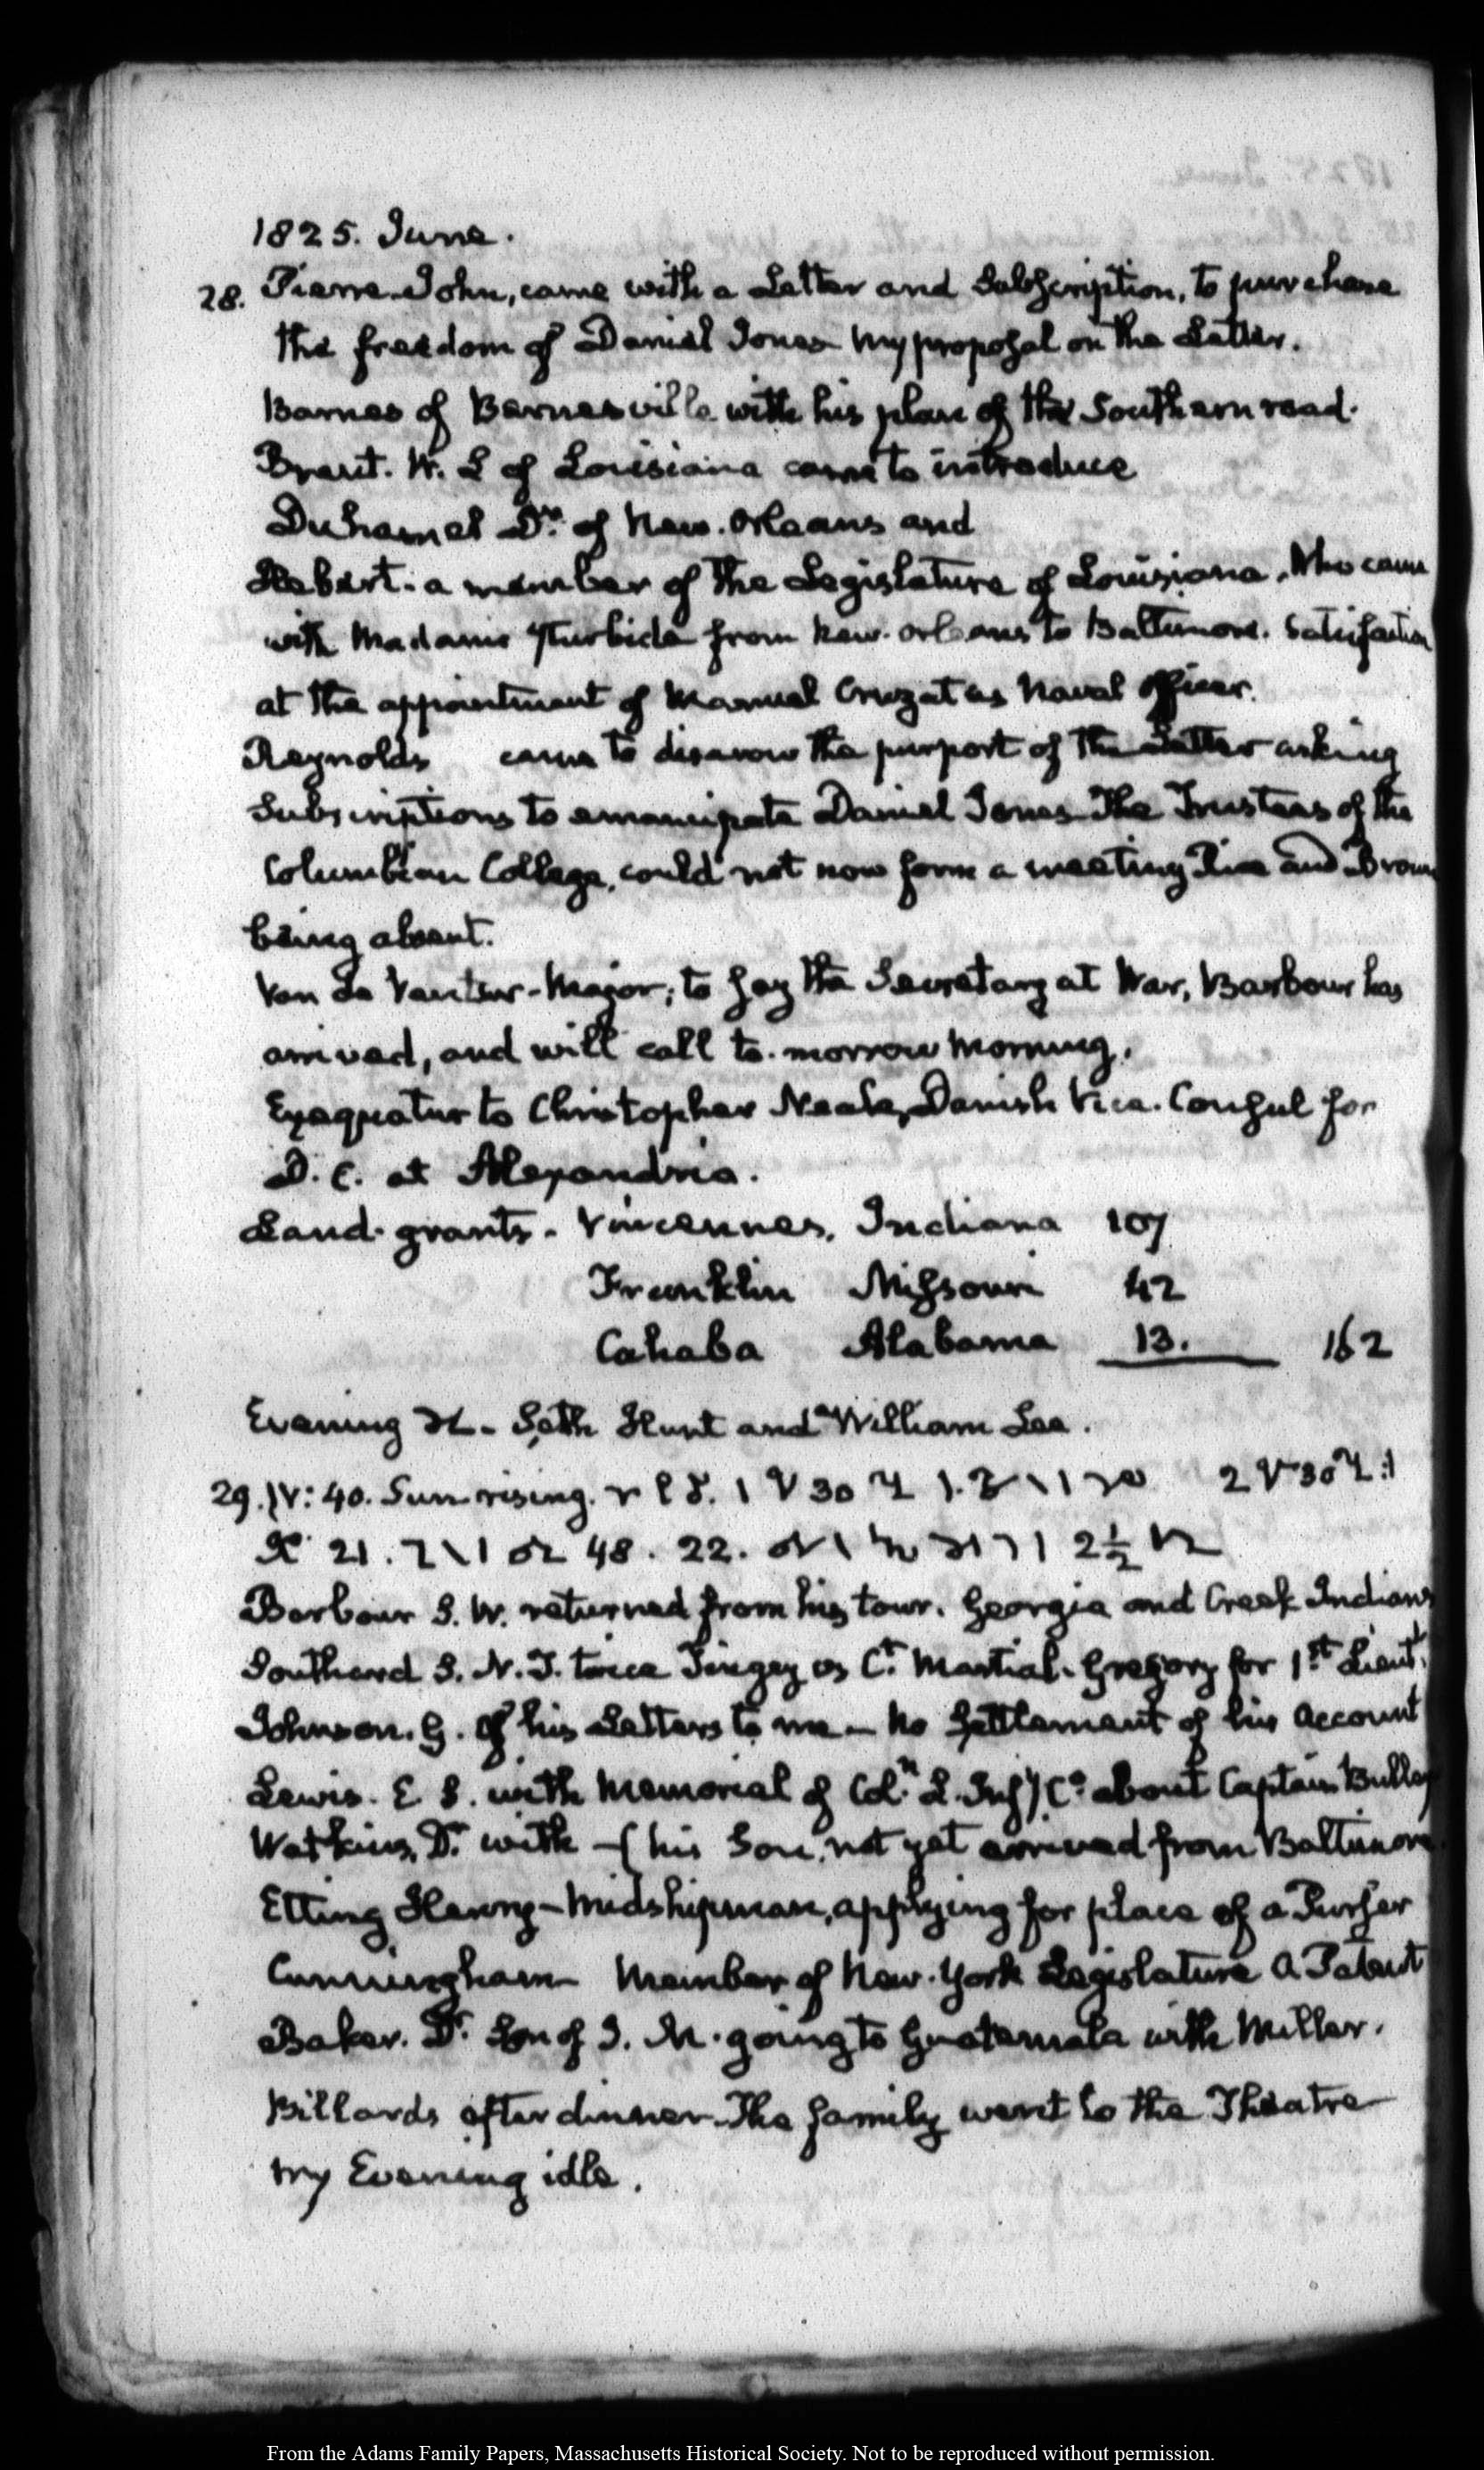 1825. June.
28. Pierre. John, came with a Letter and Subscription, to purchase
the freedom of Daniel Jones My proposal on the Letter.
Barnes of Barnesville with his plan of the Southern road.
Brent. W. L of Louisiana came to introduce
Duhamel Dr. of New. Orleans and
Hebert. a member of the Legislature of Louisiana. Who came
with Madame Yturbide from New. Orleans to Baltimore. Satisfaction
at the appointment of Manuel Cruzat as Naval Officer.
Reynolds came to disavow the purport of the Letter asking
Subscriptions to emancipate Daniel Jones The Trustees of the
Columbian College, could not now form a meeting Rice and Brown
being absent.
Van de Venter - Major; to say the Secretary at War, Barbour has
arrived, and will call to. morrow Morning.
Exequatur to Christopher Neale, Danish Vice. Consul for
D. C. at Alexandria.
Land. grants. Vincennes, Indiana 107
Franklin Missouri 42
Cahaba Alabama 13. 162
Evening Seth Hunt and William Lee.
29. IV: 40. Sun rising. 30 2 30
21. 48. 22. 2½
Barbour S. W. returned from his tour. Georgia and Creek Indians
Southard S. N. D. twice Tingey as Ct. Martial. Gregory for 1st. Lieut.
Johnson. G. Of his Letters to me — No Settlement of his Account
Lewis. E. S. with Memorial of Col.n L. about Captain
Watkins, Dr. with — (his Son, not yet arrived from Baltimore
Etting Henry - Midshipman, applying for place of a Purser
Cunningham Member of New. York Legislature A Patent
Baker. Dr. Son of J. M. going to Guatemala with Miller.
Billards after dinner. The family went to the Theatre
My Evening idle.
From the Adams Family Papers, Massachusetts Historical Society. Not to be reproduced without permission.